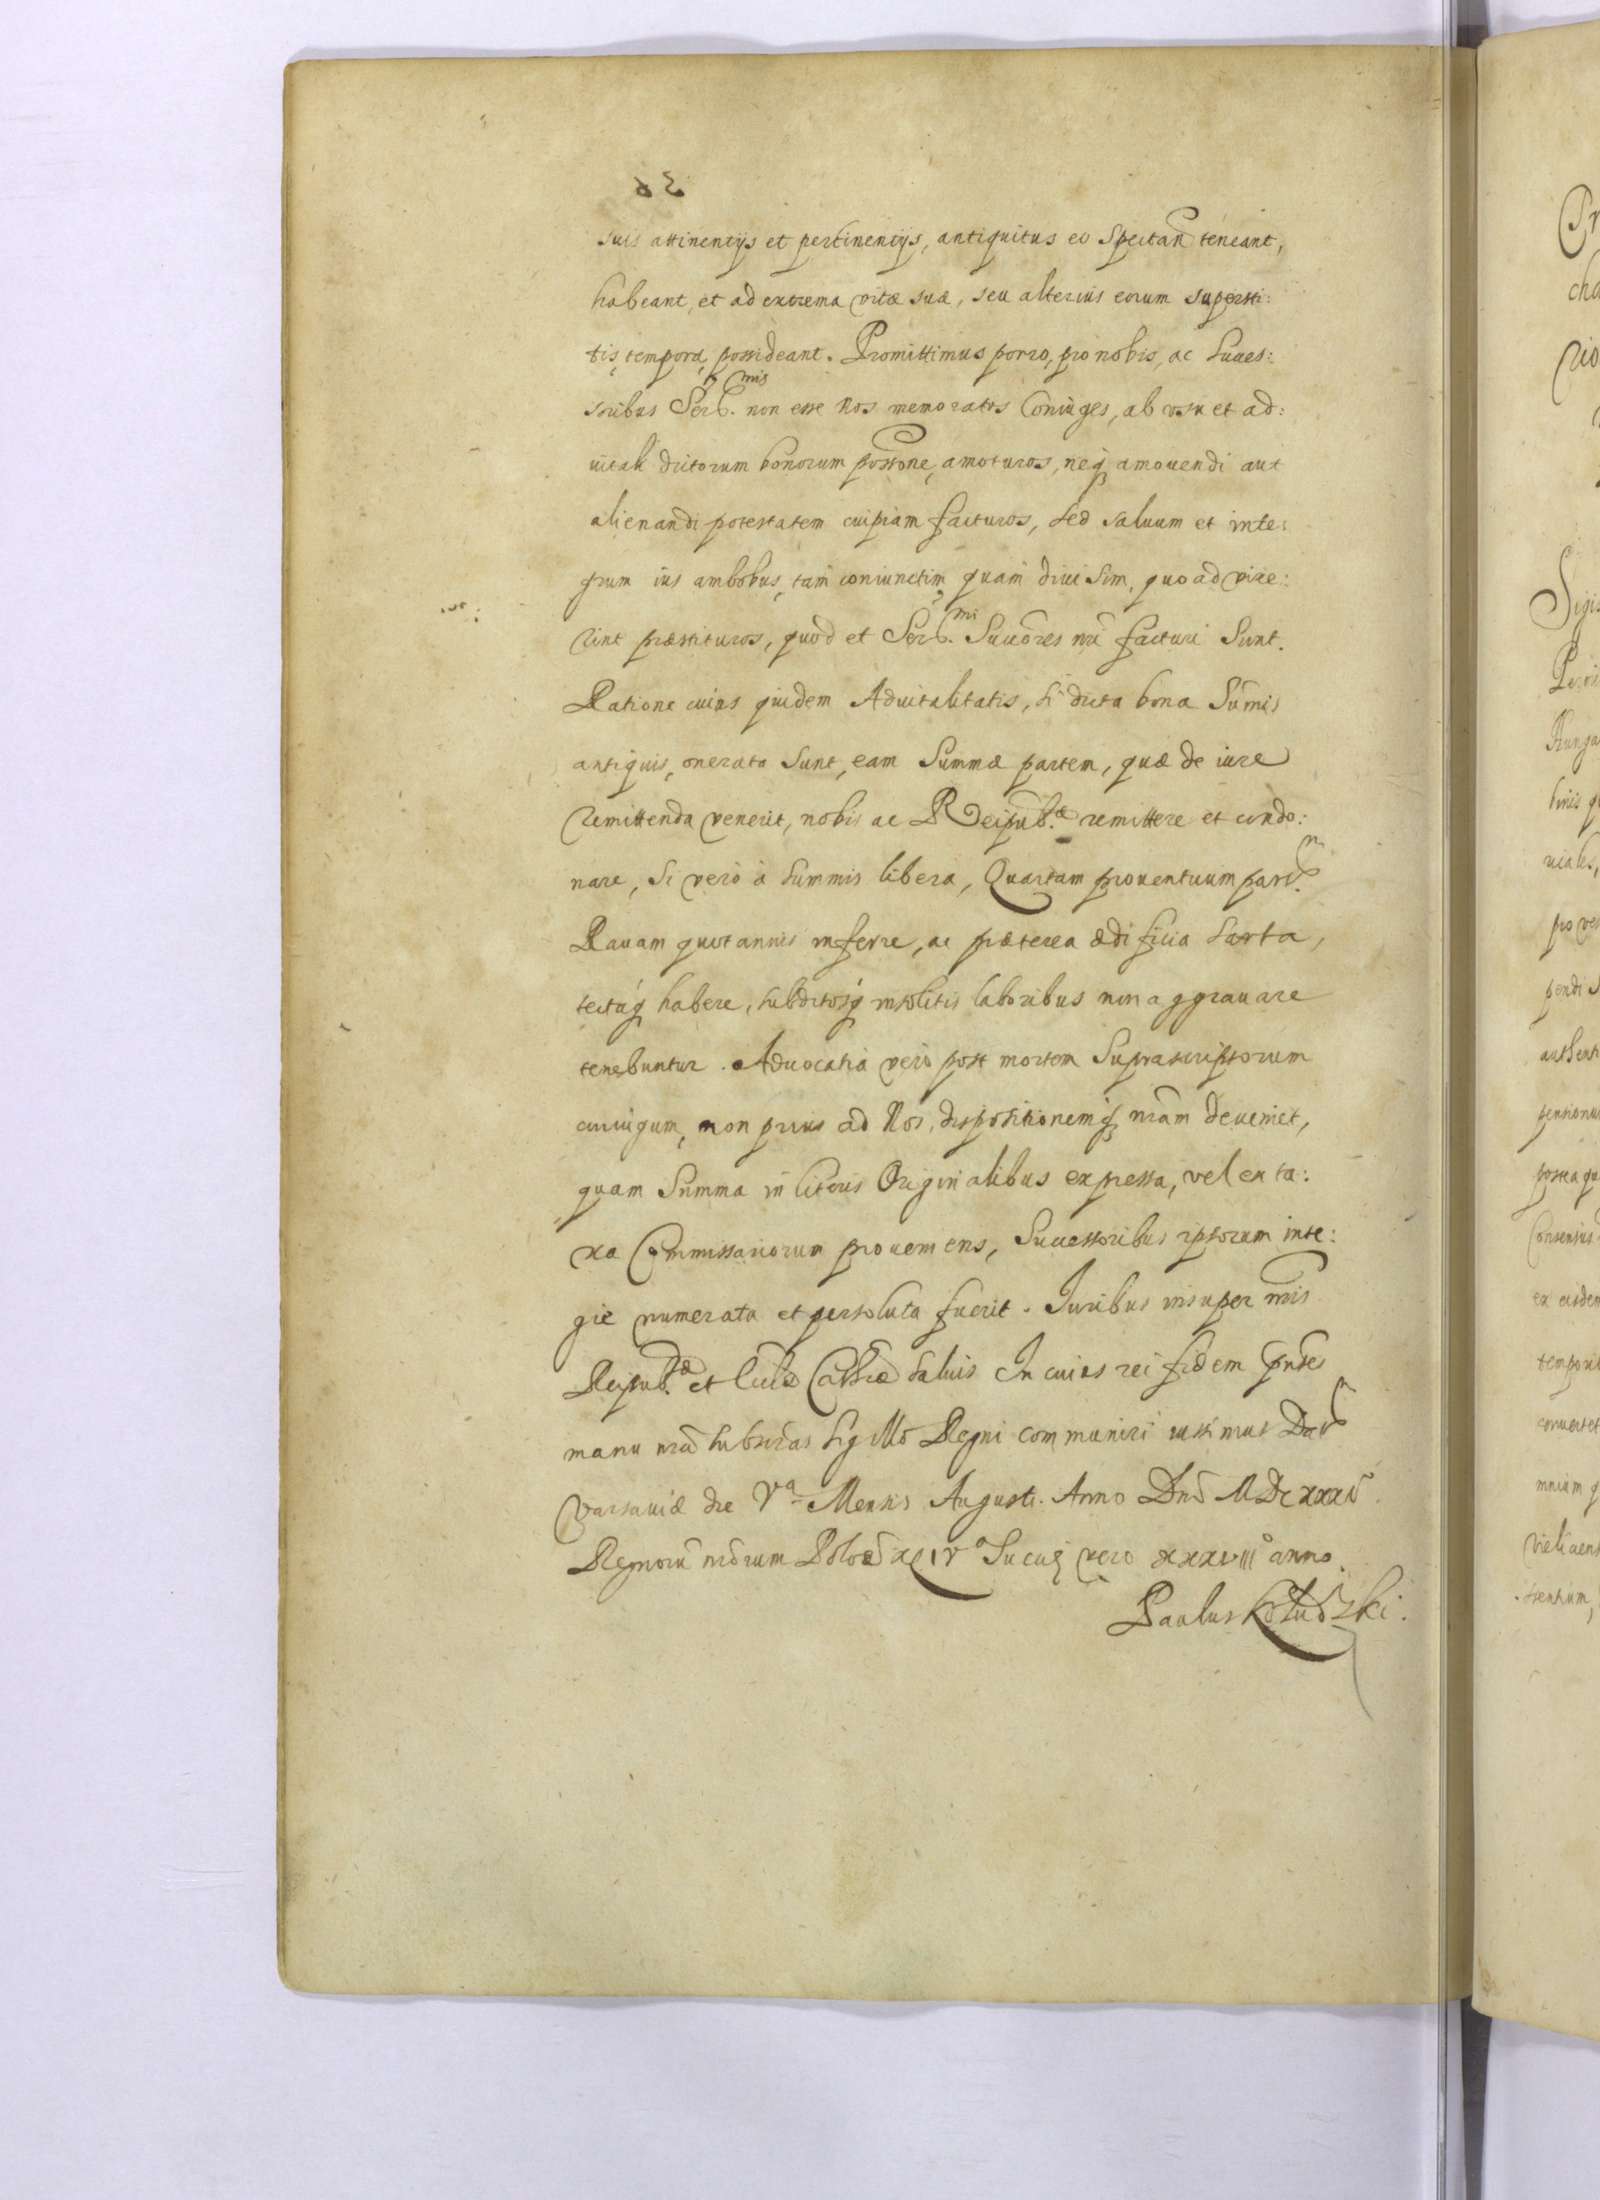 suis attinentijs et pertinentijs, antiquitus eo spectan̄ teneant,
habeant, et ad extrema vitæ suæ, seu alterius eorum supersti:
tis, tempora, possideant. Promittimus porro, pro nobis, ac succes:
soribus Ser. mis non esse Nos memoratos Coniuges, ab usu et ad:
uitali dictorum bonorum possone, amoturos, neq amouendi aut
alienandi potestatem cuipiam facturos, sed saluum et inte:
grum ius ambobus, tam coniunctim, quam diuisim, quoad vixe:
rint præstituros, quod et Ser. mi Succōres nri facturi sunt.
Ratione cuius quidem Aduitalitatis, si dicta bona Sum̄is
antiquis, onerata sunt, eam Summæ partem, quæ de iure
remittenda venerit, nobis ac Reipub. æ remittere et condo:
nare, si vero à summis libera, Quartam prouentuum partem
Rauam quotannis inferre, ac præterea ædificia sarta,
tectaq habere, subditosq insolitis laboribus non aggrauare
tenebuntur. Aduocatia vero post mortem Suprascriptorum
coniugum, non prius ad Nos, dispositionemq nrām deueniet,
quam Summa in literis Originalibus expressa, vel ex ta:
xa Commissariorum proueniens, Successoribus ipsorum inte:
gre numerata et persoluta fuerit. Iuribus insuper nris
Reipub. æ et Ecclæ Cathcæ saluis In cuius rei fidem pntes
manu nrā subscrtas sigillo Regni communiri iussimus Dat
Varsauiæ die Va Mensis Augusti. Anno Dni MDCXXXI.
Regnorū nrōrum Poloæ XLIVo Sueciæ vero XXXVIIIo anno
Paulus Kołudzki.